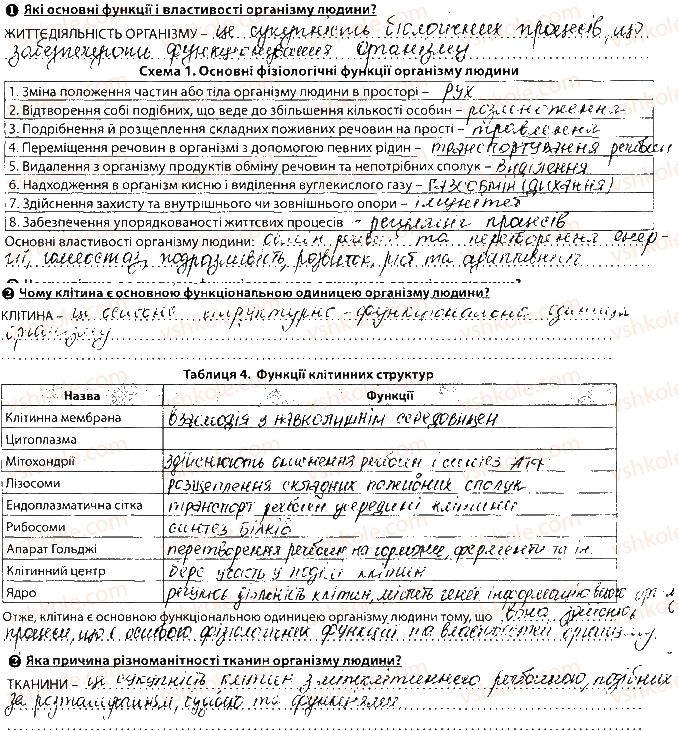 ❶ Які основні функції і властивості організму людини?
ЖИТТЄДІЯЛЬНІСТЬ ОРГАНІЗМУ – це сукупність біологічних процесів, що
забезпечують функціонування організму
Схема 1. Основні фізіологічні функції організму людини
1. Зміна положення частин або тіла організму людини в просторі – рух
2. Відтворення собі подібних, що веде до збільшення кількості особин – розмноження
3. Подрібнення й розщеплення складних поживних речовин на прості – травлення
4. Переміщення речовин в організмі з допомогою певних рідин – транспортування речовин
5. Видалення з організму продуктів обміну речовин та непотрібних сполук – виділення
6. Надходження в організм кисню і виділення вуглекислого газу – газообмін (дихання)
7. Здійснення захисту та внутрішнього чи зовнішнього опори – імунітет
8. Забезпечення упорядкованості життєвих процесів – регуляція процесів
Основні властивості організму людини: обмін речовин та перетворення енер-
гії, гомеостаз, подразливість, розвиток, ріст та
❷ Чому клітина є основною функціональною одиницею організму людини?
КЛІТИНА – це основна структурно-функціональна одиниця
організму
Таблиця 4. Функції клітинних структур
Назва Функції
Клітинна мембрана взаємодія з навколишнім середовищем
Цитоплазма
Мітохондрії здійснюють окиснення речовин і синтез АТФ
Лізосоми розщеплення складних поживних сполук
Ендоплазматична сітка транспорт речовин усередині клітини
Рибосоми синтез білків
Апарат Гольджі перетворення речовин на гормони, ферменти та ін.
Клітинний центр бере участь у поділі клітин
Ядро регулює діяльність клітин, містить генет. інформацію всього
Отже, клітина є основною функціональною одиницею організму людини тому, що вона здійснює
процеси, що є основою фізіологічних функцій та властивостей організму.
❷ Яка причина різноманітності тканин організму людини?
ТКАНИНИ – це сукупність клітин з міжклітинною речовиною, подібних
за розташуванням, будовою та функціями
vshkole.com